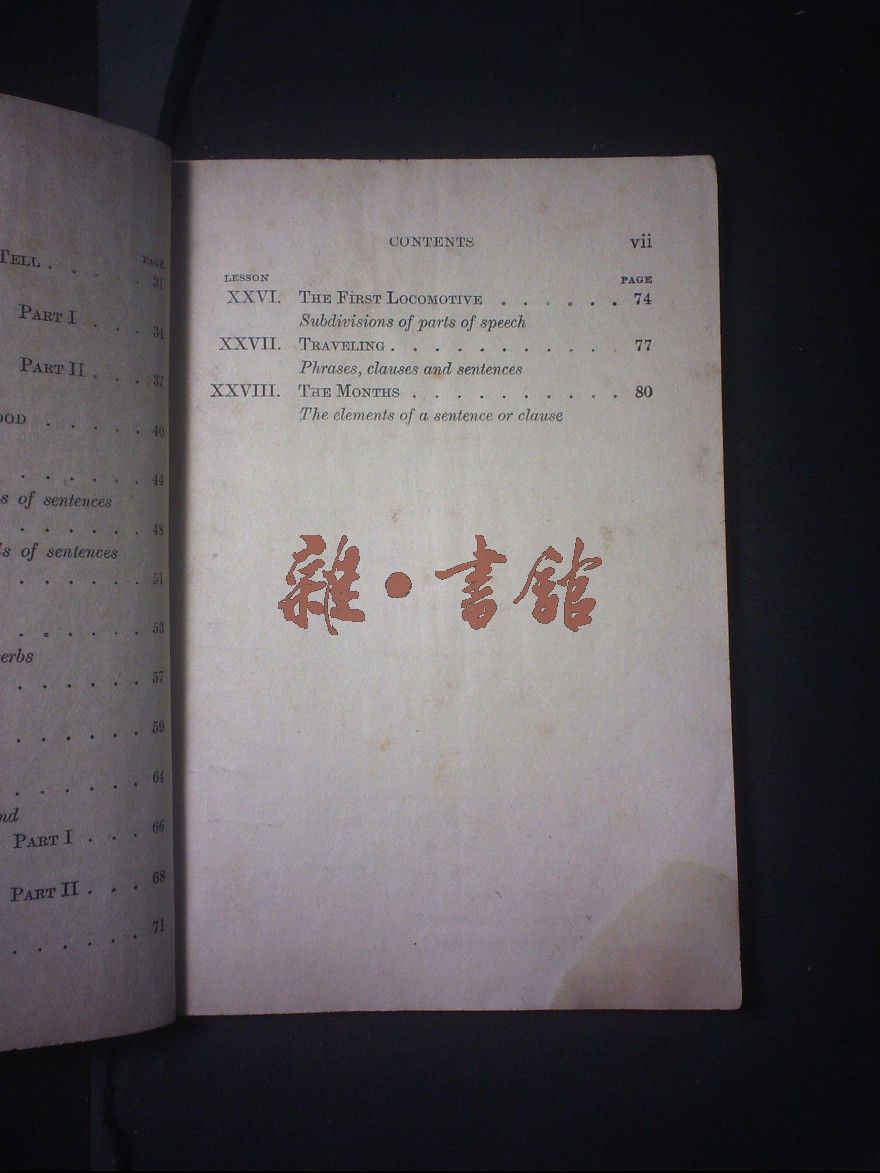 TELL . . . . . 31
PAGE
PART I . . . 34
PART II . . . 37
. . . . . 40
. . . . . . 44
of sentences
. . . . . . 48
of sentences
. . . . . . 51
. . . . . . 53
. . . . . . 57
. . . . . . 59
. . . . . . 64
PART I . . . 66
PART II . . . 68
. . . . . . 71
CONTENTS vii
LESSON PAGE
XXVI. THE FIRST LOCOMOTIVE . . . . . . 74
Subdivisions of parts of speech
XXVII. TRAVELING . . . . . . . . . . 77
Phrases, clauses and sentences
XXVIII. THE MONTHS . . . . . . . . . 80
The elements of a sentence or clause
雜·書館